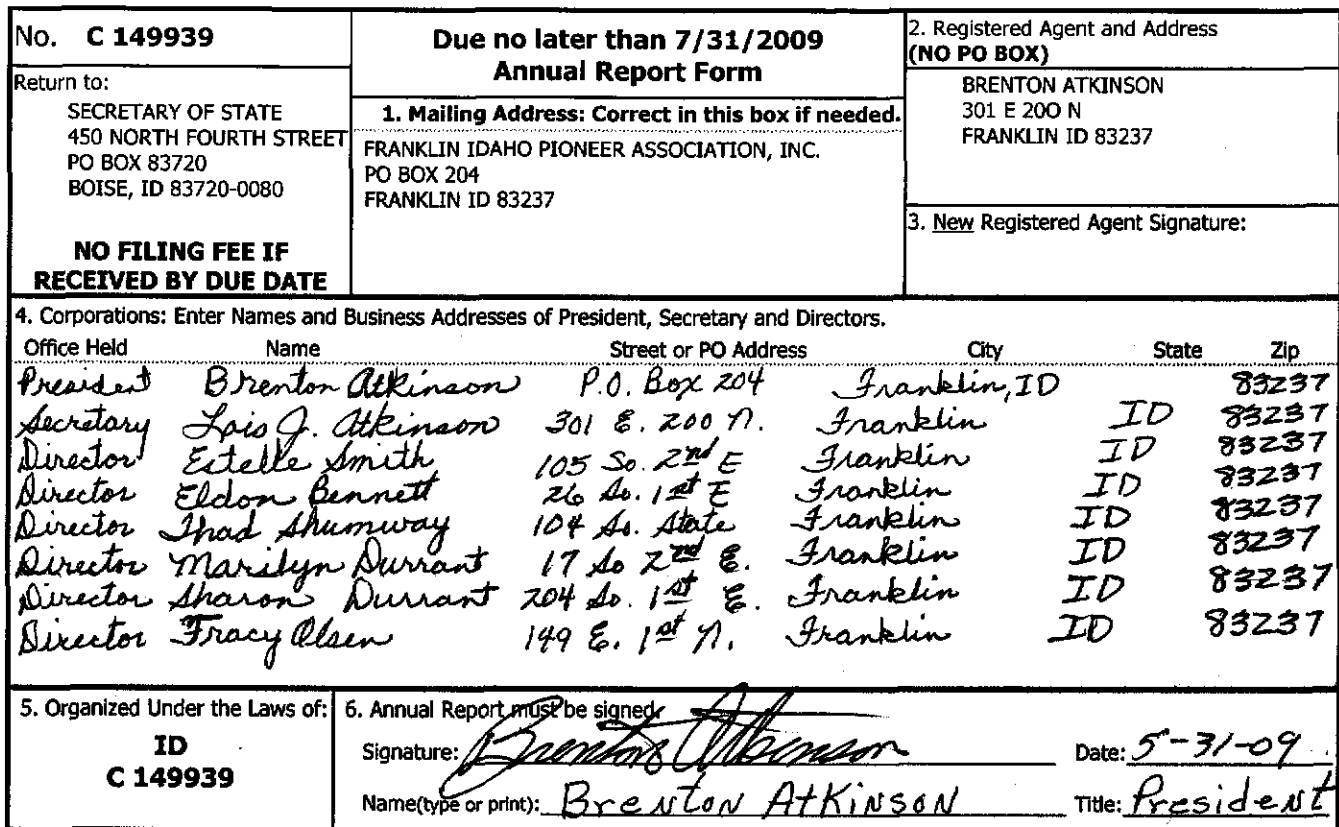 No. C 149939
Return to:
SECRETARY OF STATE
450 NORTH FOURTH STREET
PO BOX 83720
BOISE, ID 83720-0080
NO FILING FEE IF
RECEIVED BY DUE DATE
Due no later than 7/31/2009
Annual Report Form
1. Mailing Address: Correct in this box if needed.
FRANKLIN IDAHO PIONEER ASSOCIATION, INC.
PO BOX 204
FRANKLIN ID 83237
2. Registered Agent and Address
(NO PO BOX)
BRENTON ATKINSON
301 E 200 N
FRANKLIN ID 83237
3. New Registered Agent Signature:
4. Corporations: Enter Names and Business Addresses of President, Secretary and Directors.
Office Held Name Street or PO Address City State Zip
President Brenton Atkinson P.O. Box 204 Franklin, ID 83237
Secretary Lois J. Atkinson 301 E. 200 N. Franklin ID 83237
Director Estelle Smith 105 So. 2nd E Franklin ID 83237
Director Eldon Bennett 26 So. 1st E Franklin ID 83237
Director Thad Shumway 104 So. State Franklin ID 83237
Director Marilyn Durrant 17 So 2nd E. Franklin ID 83237
Director Sharon Durrant 204 So. 1st E. Franklin ID 83237
Director Tracy Olsen 149 E. 1st N. Franklin ID 83237
5. Organized Under the Laws of:
ID
C 149939
6. Annual Report must be signed.
Signature: Brenton Atkinson Date: 5-31-09
Name(type or print): Brenton Atkinson Title: President